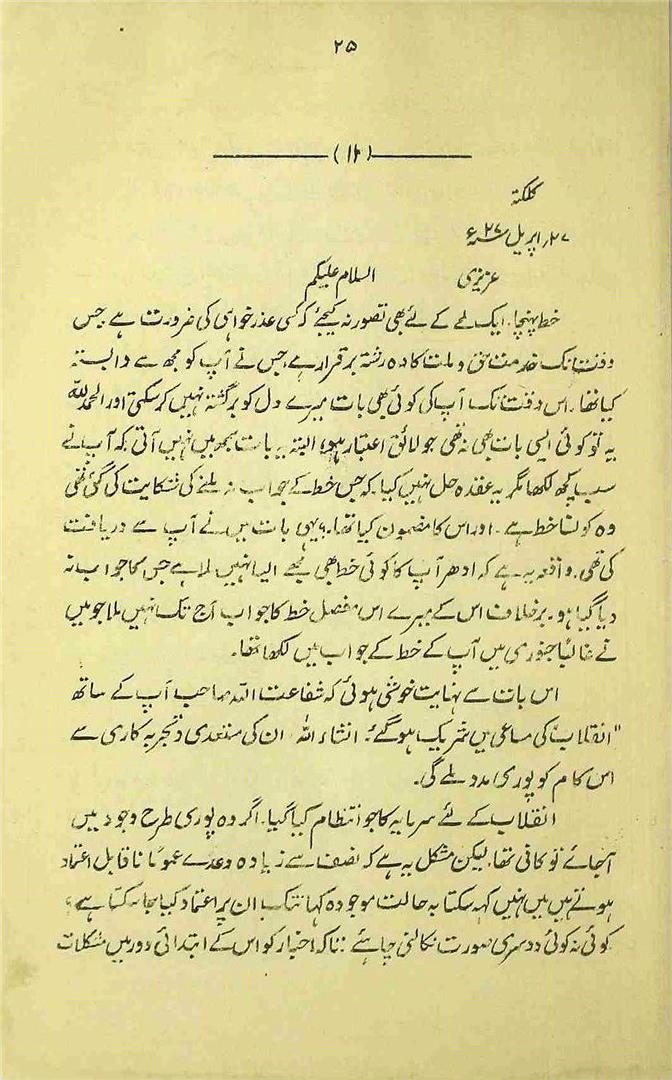 ۲۵
(۱۲)
کلکتہ
۲۷؍ اپریل ۲۷ سنہ ء
عزیزی السلام علیکم
خط پہنچا۔ ایک لمحے کے لئے بھی تصور نہ کیجئے کہ کسی عذر خواہی کی ضرورت ہے جس
وقت تک خدمت حق و ملت کا وہ رشتہ برقرار ہے، جس نے آپ کو مجھ سے وابستہ
کیا تھا۔ اس وقت تک آپ کی کوئی بھی بات میرے دل کو برگشتہ نہیں کر سکتی اور الحمدللہ
یہ تو کوئی ایسی بات بھی نہ تھی جو لائق اعتبار ہو، البتہ یہ بات سمجھ میں نہیں آتی کہ آپ نے
سب کچھ لکھا مگر یہ عقدہ حل نہیں کیا کہ جس خط کے جواب نہ ملنے کی شکایت کی گئی تھی
وہ کونسا خط ہے۔ اور اس کا مضمون کیا تھا۔ یہی بات میں نے آپ سے دریافت
کی تھی۔ واقعہ یہ ہے کہ ادھر آپ کا کوئی خط بھی مجھے ایسا نہیں ملا ہے جس کا جواب نہ
دیا گیا ہو۔ برخلاف اس کے میرے اس مفصل خط کا جواب آج تک نہیں ملا جو میں
نے غالباً جنوری میں آپ کے خط کے جواب میں لکھا تھا۔
اس بات سے نہایت خوشی ہوئی کہ شفاعت اللہ صاحب آپ کے ساتھ
"انقلاب" کی مساعی میں شریک ہو گئے۔ انشاء اللہ ان کی مستعدی و تجربہ کاری سے
اس کام کو پوری مدد ملے گی۔
انقلاب کے لئے سرمایہ کا جو انتظام کیا گیا۔ اگر وہ پوری طرح وجود میں
آجائے تو کافی تھا۔ لیکن مشکل یہ ہے کہ نصف سے زیادہ وعدے عموماً ناقابل اعتماد
ہوتے ہیں میں نہیں کہہ سکتا بہ حالت موجودہ کہاں تک ان پر اعتماد کیا جا سکتا ہے؟
کوئی نہ کوئی دوسری صورت نکالنی چاہئے؛ تاکہ اخبار کو اس کے ابتدائی دور میں مشکلات